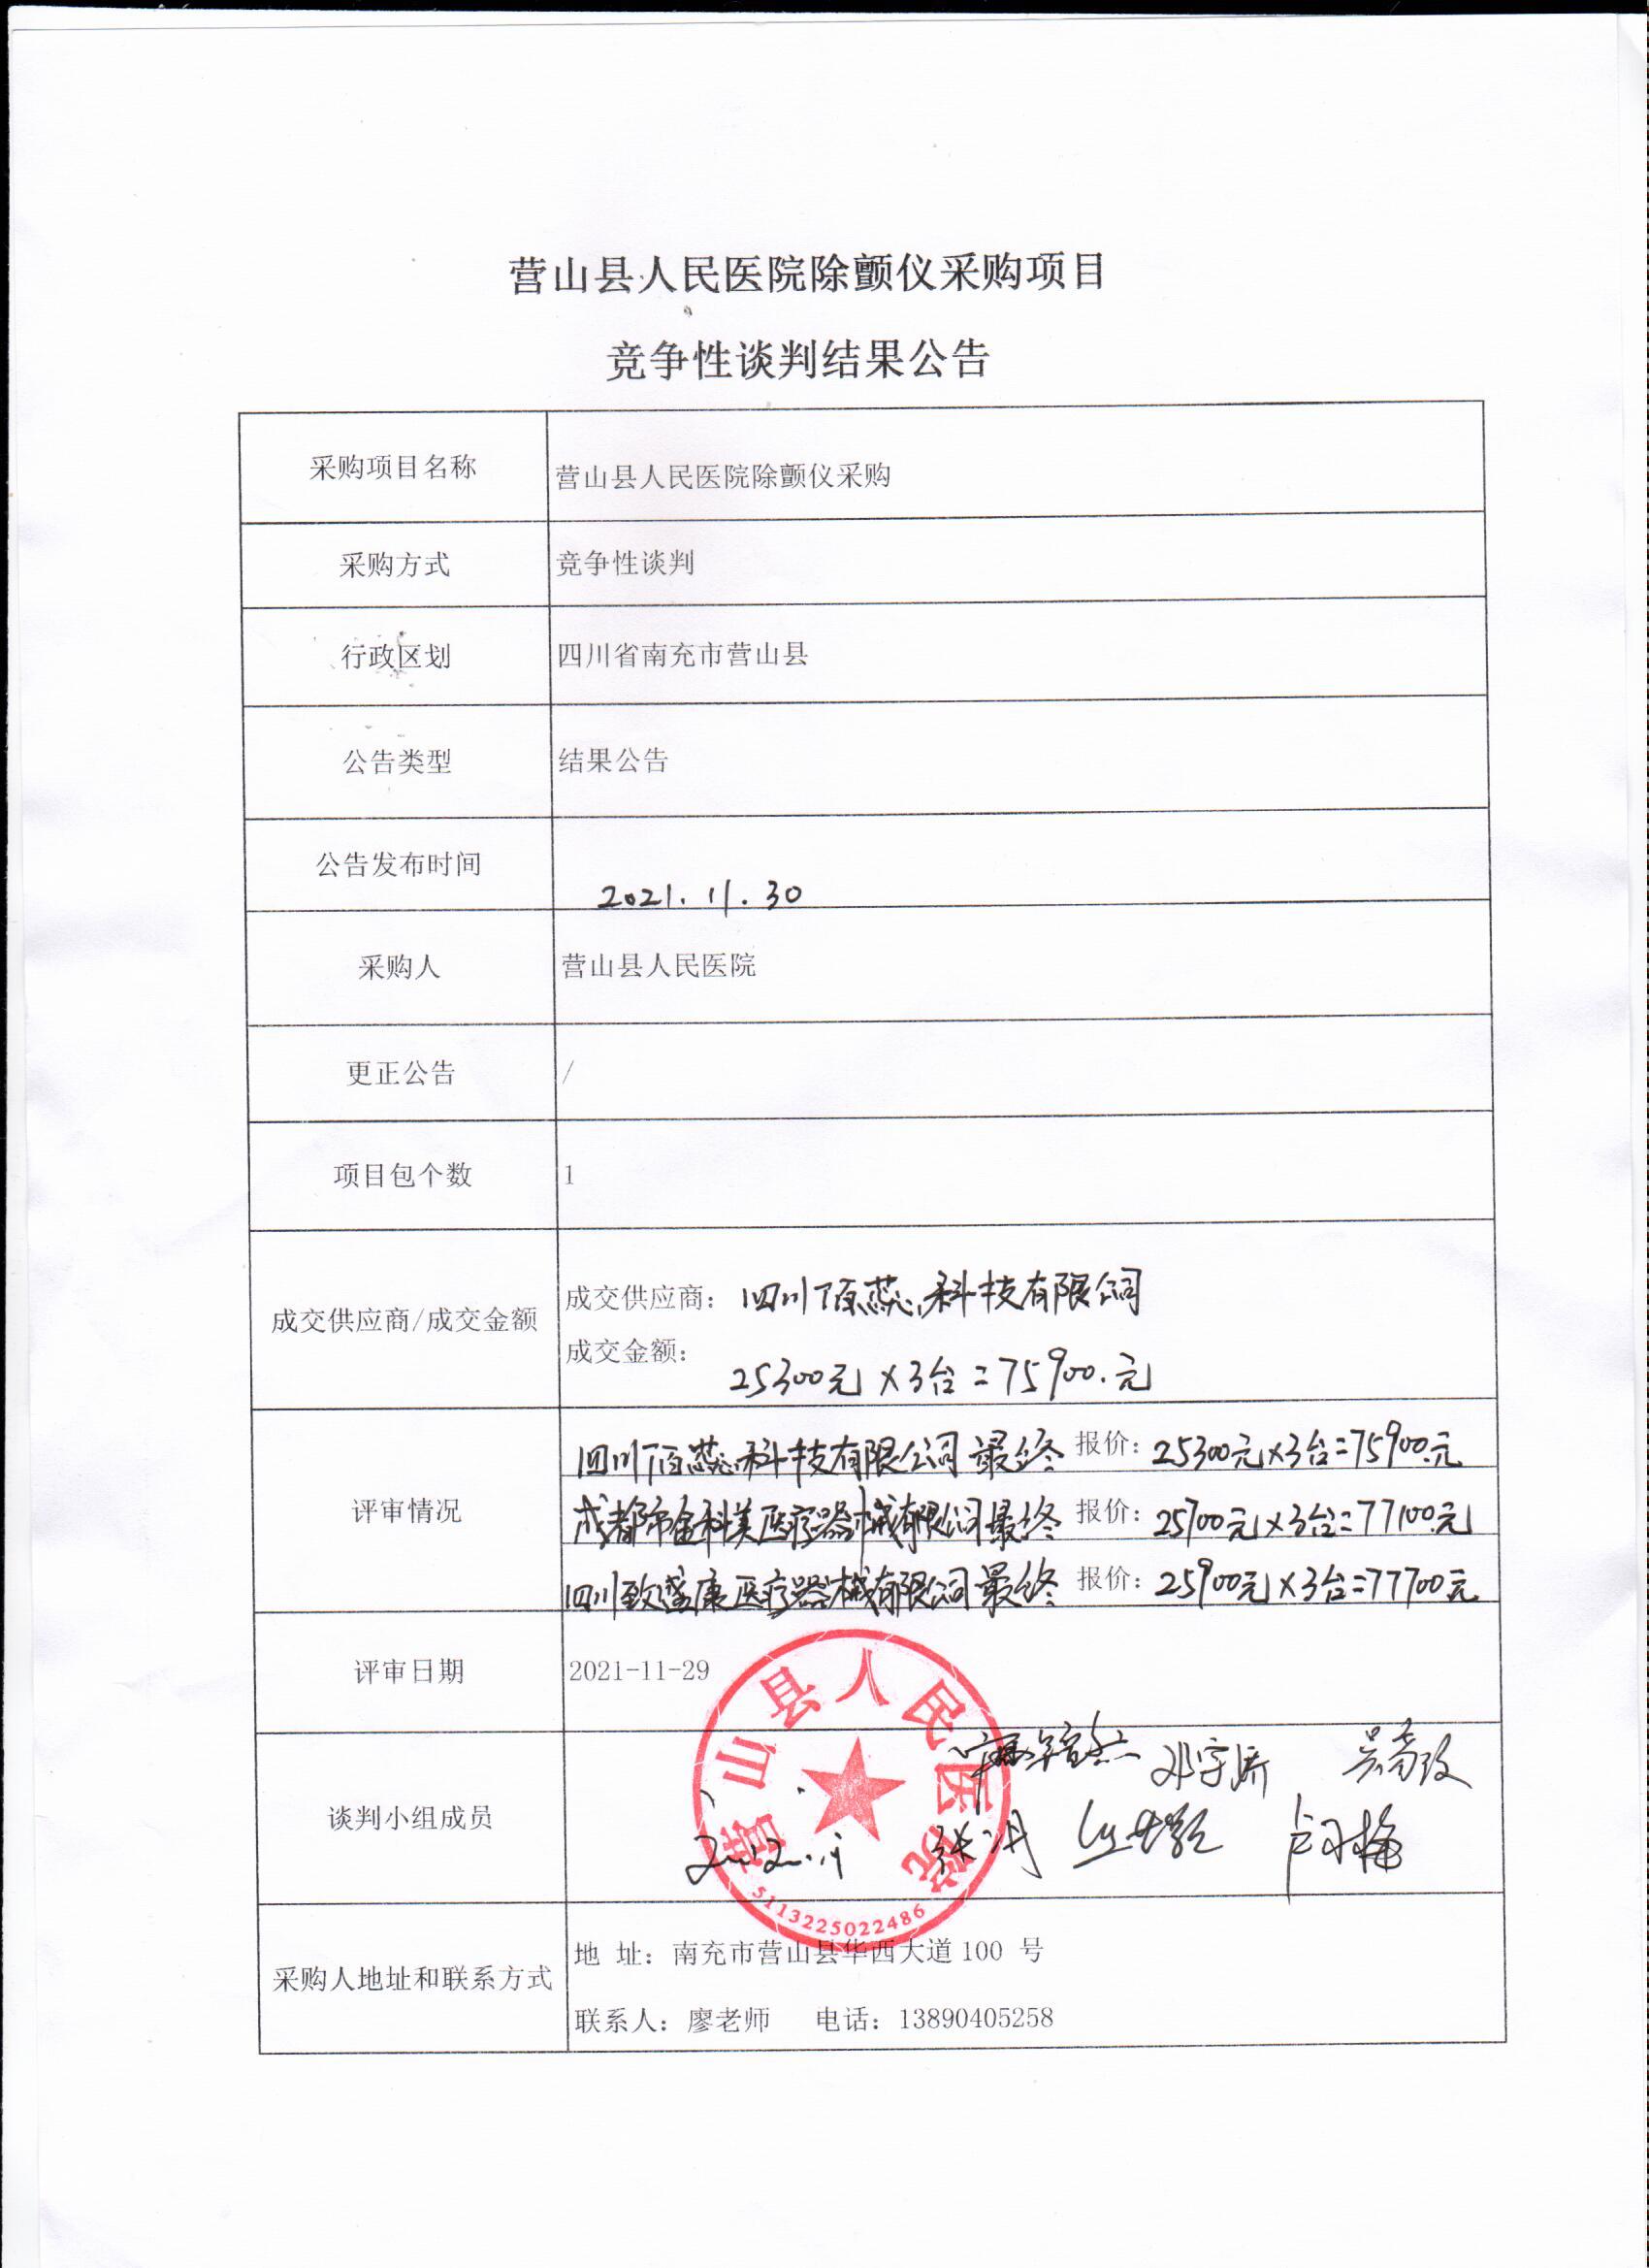 营山县人民医院除颤仪采购项目
竞争性谈判结果公告
采购项目名称
营山县人民医院除颤仪采购
采购方式
竞争性谈判
行政区划
四川省南充市营山县
公告类型
结果公告
公告发布时间
2021.11.30
采购人
营山县人民医院
更正公告
/
项目包个数
1
成交供应商/成交金额
成交供应商：四川 科技有限公司
成交金额：
25300元×3台=75900.元
评审情况
四川 科技有限公司最终 报价：25300元×3台=75900.元
成都市金科美医疗器械有限公司最终 报价：25700元×3台=77100.元
四川致盛康医疗器械有限公司最终 报价：25900元×3台=77700元
评审日期
2021-11-29
谈判小组成员
营山县人民医院
5113225022486
采购人地址和联系方式
地 址：南充市营山县华西大道100 号
联系人：廖老师 电话：13890405258